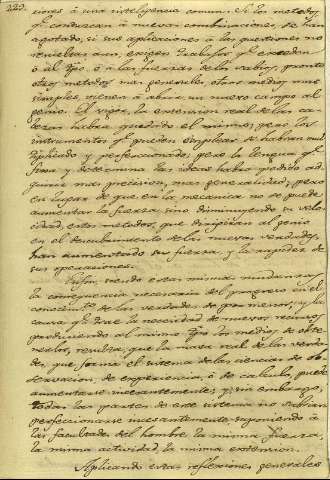 223.
ciones á una inteligencia comun. Si los metodos
q.e conducian á nuevas combinaciones, se han
agotado, si sus aplicaciones á las questiones no
resueltas aun, exigen trabajos q.e exceden
ó al tpo. ó á las fuerzas de los sabios, pronto
otros metodos mas generales, otros medios mas
simples, vienen á abrir un nuevo campo al
genio. El vigor, la extension real de las ca-
bezas habrá quedado el mismo; pero los
instrumentos q.e pueden emplear se habran mul-
tiplicado y perfeccionado; pero la lengua q.e
fixa y determina las ideas habrá podido ad-
quirir mas precision, mas generalidad; pero
en lugar de que en la mecanica no se puede
aumentar la fuerza, sino disminuyendo la velo-
cidad, estos metodos, que dirigiran al genio
en el descubrimiento de las nuevas verdades,
han aumentado su fuerza, y la rapidez de
sus operaciones.
Enfin, siendo estas mismas mudanzas
la consequencia necesaria del progreso en el
conocim.to de las verdades de por menor, y la
causa q.e trae la necesidad de nuevos recursos
produciendo al mismo tpo. los medios de obte-
nerlos, resulta, que la masa real de las verda-
des, que forma el sistema de las ciencias de ob-
servacion, de experiencia, ó de calculo, puede
aumentarse incesantemente; y sin embargo,
todas las partes de este sistema no podrian
perfeccionarse incesantemente, suponiendo á
las facultades del hombre la misma fuerza,
la misma actividad, la misma extension.
Aplicando estas reflexiones generales